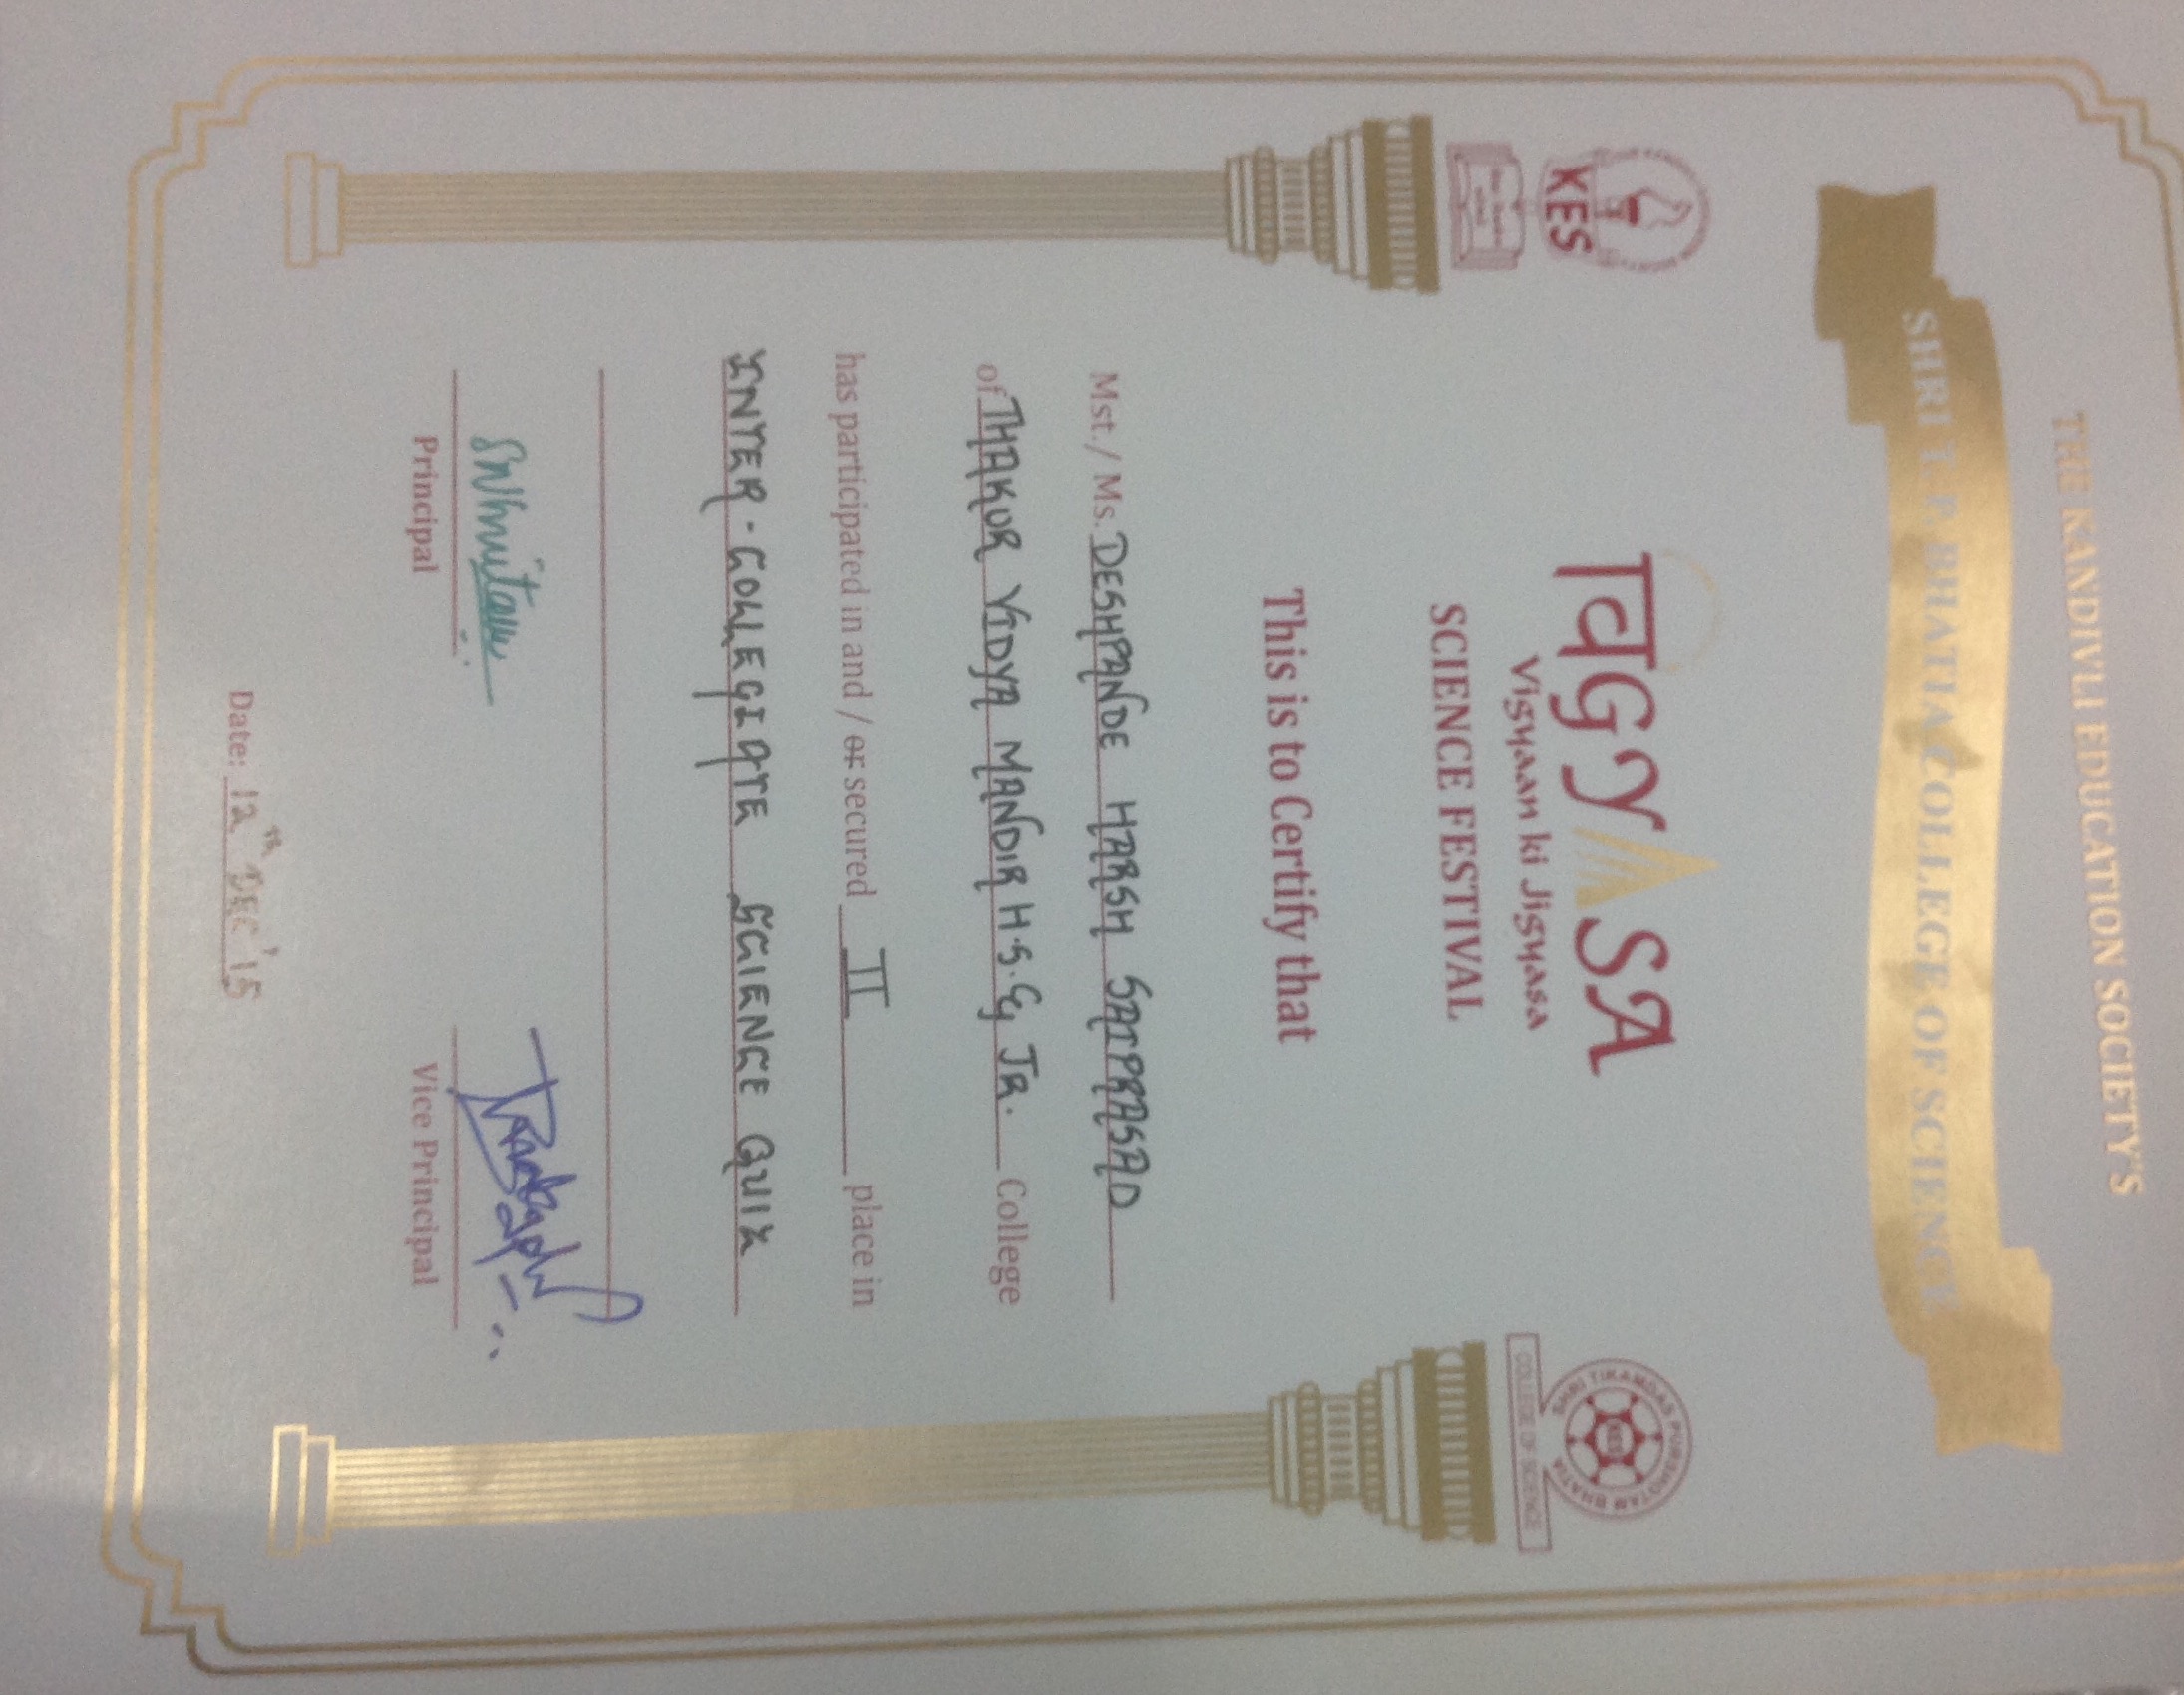 THE KANDIVLI EDUCATION SOCIETY'S
SHRI T. P. BHATIA COLLEGE OF SCIENCE
KES
SHRI TIKAMDAS PURSHOTAM BHATIA
KES
COLLEGE OF SCIENCE
विGYASA
Vigyaan ki Jigyasa
SCIENCE FESTIVAL
This is to Certify that
Mst./ Ms. DESHPANDE HARSH SAIPRASAD
of THAKUR VIDYA MANDIR H.S. & JR. College
has participated in and / or secured II place in
INTER-COLLEGIATE SCIENCE QUIZ
Principal
Vice Principal
Date: 12TH DEC '15